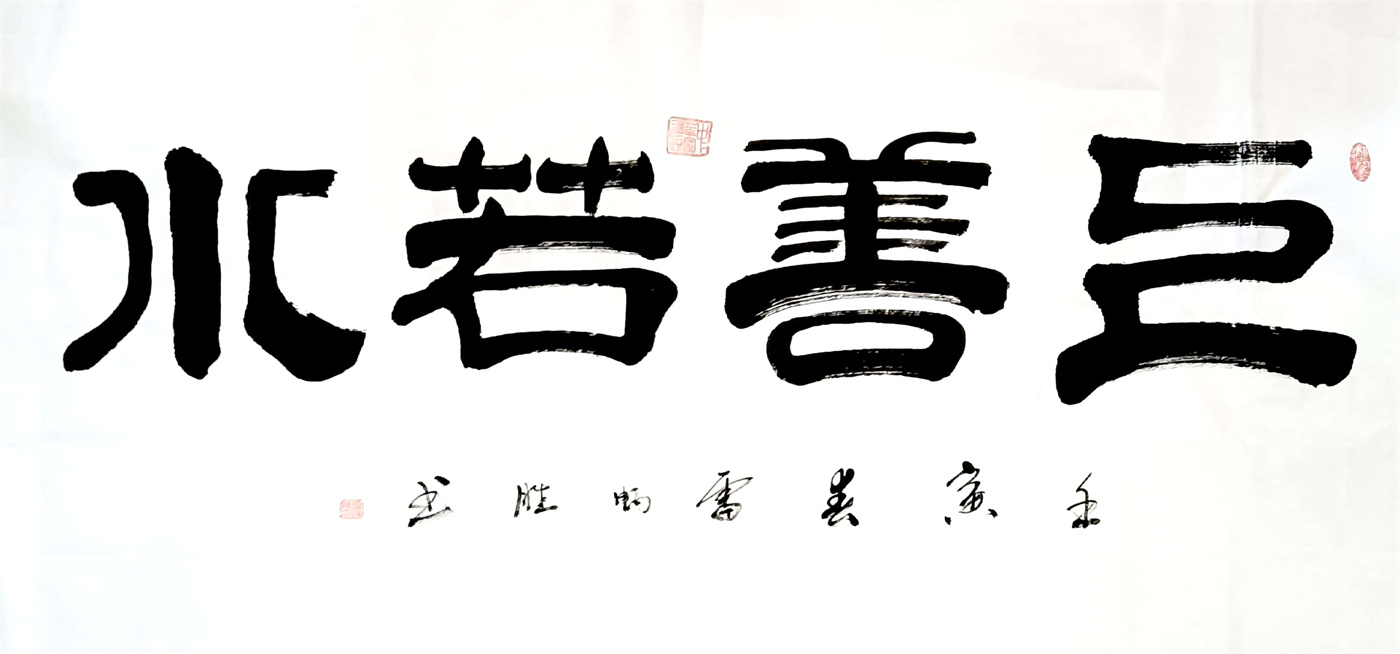 上善若水
壬寅春雷炳胜书